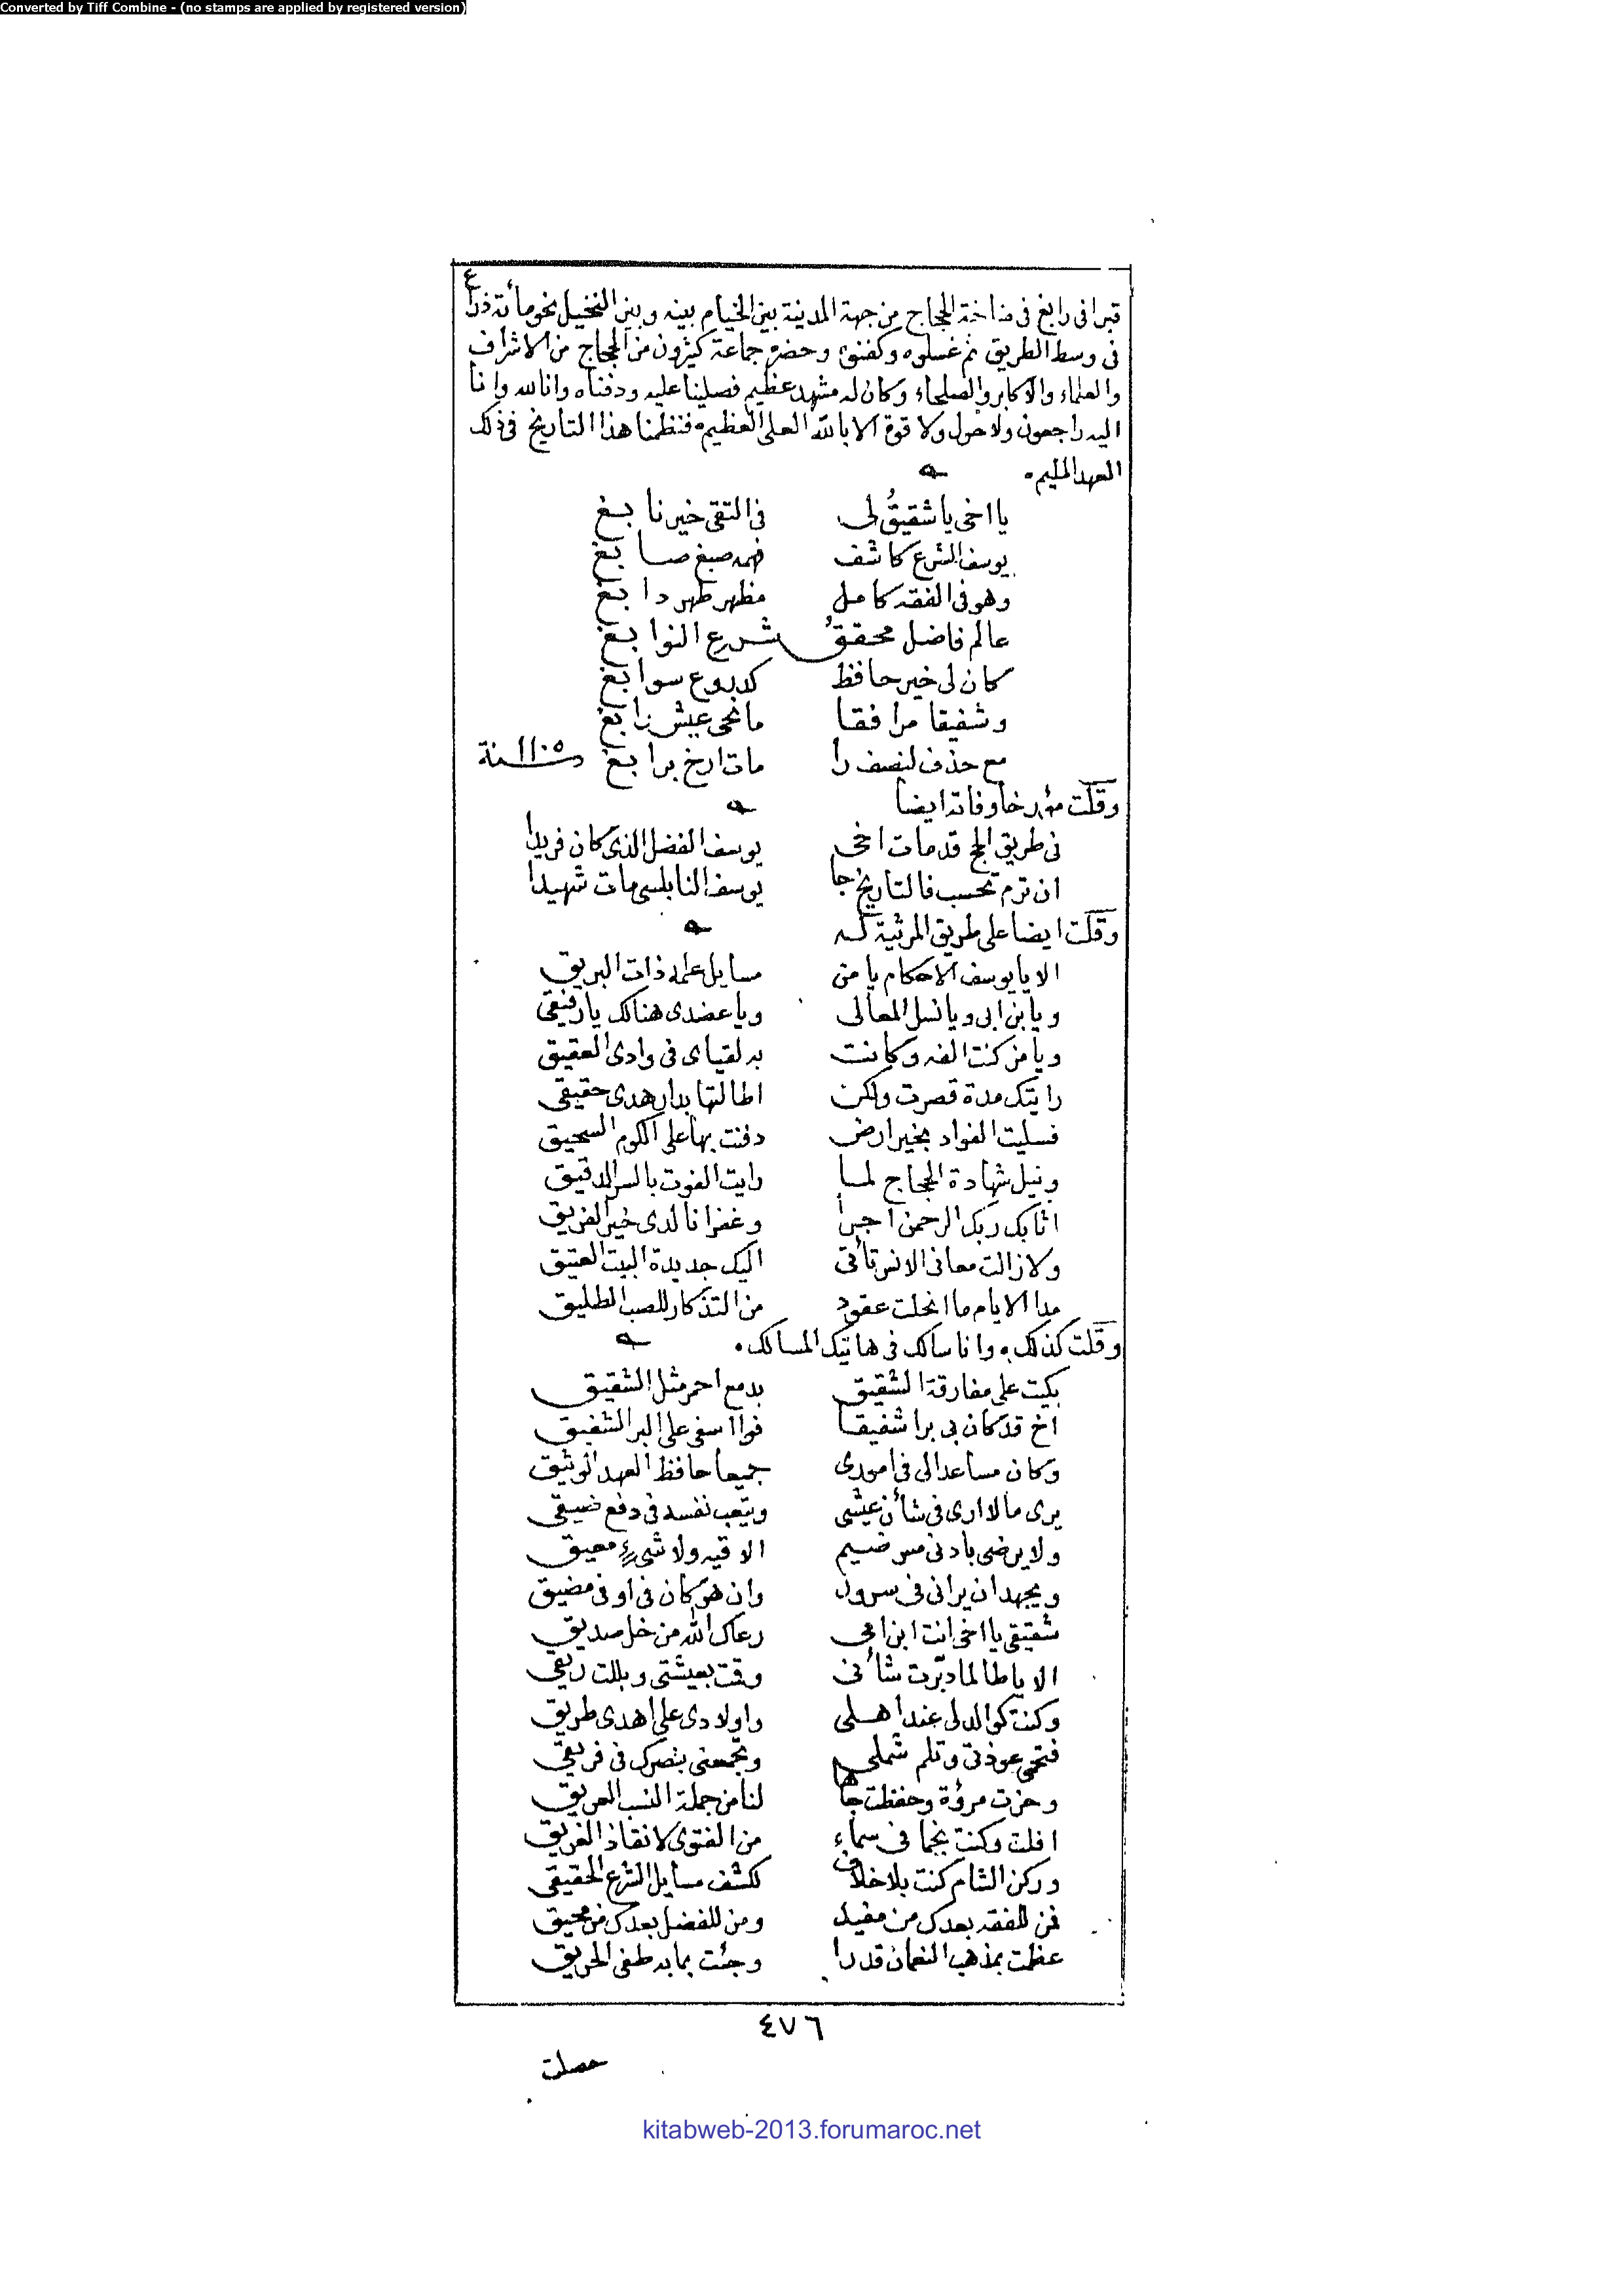 Converted by Tiff Combine - (no stamps are applied by registered version)
قبرا فى رابغ فى مناخة الحجاج من جهة المدينة بين الخيام بينه وبين النخيل نحو مائة ذراع
فى وسط الطريق ثم غسلوه وكفنوه وحضر جماعة كثيرون من الحجاج من الاشراف
والعلماء والاكابر والصلحاء وكان له مشهد عظيم فصلينا عليه ودفناه وانا لله وانا
اليه راجعون ولا حول ولا قوة الا بالله العلى العظيم فنظمنا هذا التاريخ فى ذلك
العهد المليم
يا اخى يا شقيق لى فى التقى خير نابغ
يوسف الشرع كاشف فهمه صبغ صابغ
وهو فى الفقه كامل مظهر طهر دابغ
عالم فاضل محقق شرع النوابغ
كان لى خير حافظ كدروع سوابغ
وشفيقا مرافقا ما نحى عيش رابغ
مع حذف لنصف را مات ارخ برابغ سنة ١١٠٥
وقلت مؤرخا وفاته ايضا
فى طريق الحج قد مات اخى يوسف الفضل الذى كان فريدا
ان ترم تحسب فالتاريخ جا يوسف النابلسى مات شهيدا
وقلت ايضا على طريق المرثية له
الا يا يوسف الاحكام يا من مسايل علمه ذات البريق
ويا بن ابى ويا نسل المعالى ويا عضدى هنالك يا رفيقى
ويا من كنت الفه وكانت به لقياى فى وادى العقيق
رايتك مدة قصرت ولكن اطالتها بدار هدى حقيقى
فسليت الفواد بخير ارض دفنت بها على الكوم السحيق
ونيل شهادة الحجاج لما رايت الفوت بالسر الدقيق
اثابك ربك الرحمن اجرا وغفرانا لدى خير الفريق
ولا زالت معانى الانس تأتى اليك جديدة البيت العتيق
مدا الايام ما انحلت عقود من التذكار للصب الطليق
وقلت كذلك وانا سالك فى هاتيك المسالك
بكيت على مفارقة الشقيق بدمع احمر مثل الشقيق
اخ قد كان بى برا شفيقا فوا اسفى على البر الشفيق
وكان مساعدا لى فى امورى جميعا حافظ العهد الوثيق
يرى ما لا ارى فى شأن عيشى ويتعب نفسه فى دفع ضيقى
ولا يرضى بادنى مس ضيم الاقيه ولا شىء معيق
ويجهد ان يرانى فى سرور وان هو كان فى اوفى مضيق
شقيقى يا اخى انت ابن امى رعاك الله من خل صديق
الا يا طالما دبرت شأنى وقت بعيشتى وبللت ريقى
وكنت كوالد لى عند اهلى واولادى على اهدى طريق
فتحمى عوذتى وتلم شملى وتجمعنى بنصرك فى فريقى
وحزت مروة وحفظت جاها لنا من جملة النسب العريق
افلت وكنت نجما فى سماء من الفتوى لانقاذ الغريق
وركن الشام كنت بلا خلاف لكشف مسايل الشرع الحقيقى
فمن للفقه بعدك من مفيد ومن للفضل بعدك من محيق
عظمت بمذهب النعمان قدرا وجئت بما به طفى الحريق
٤٧٦
حصلت
kitabweb-2013.forumaroc.net